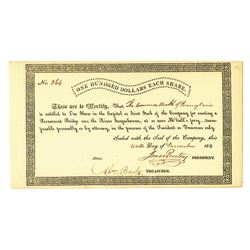 ONE HUNDRED DOLLARS EACH SHARE.
No. 364
These are to Certify, That The Commonwealth of Pennsylvania
is entitled to One Share in the Capital or Joint Stock of the Company for erecting a
Permanent Bridge over the River Susquehanna, at or near M'Call's ferry, trans-
ferable personally or by attorney, in the presence of the President or Treasurer only.
Sealed with the Seal of the Company, this
tenth Day of December 181
PRESIDENT.
Attest.
TREASURER.